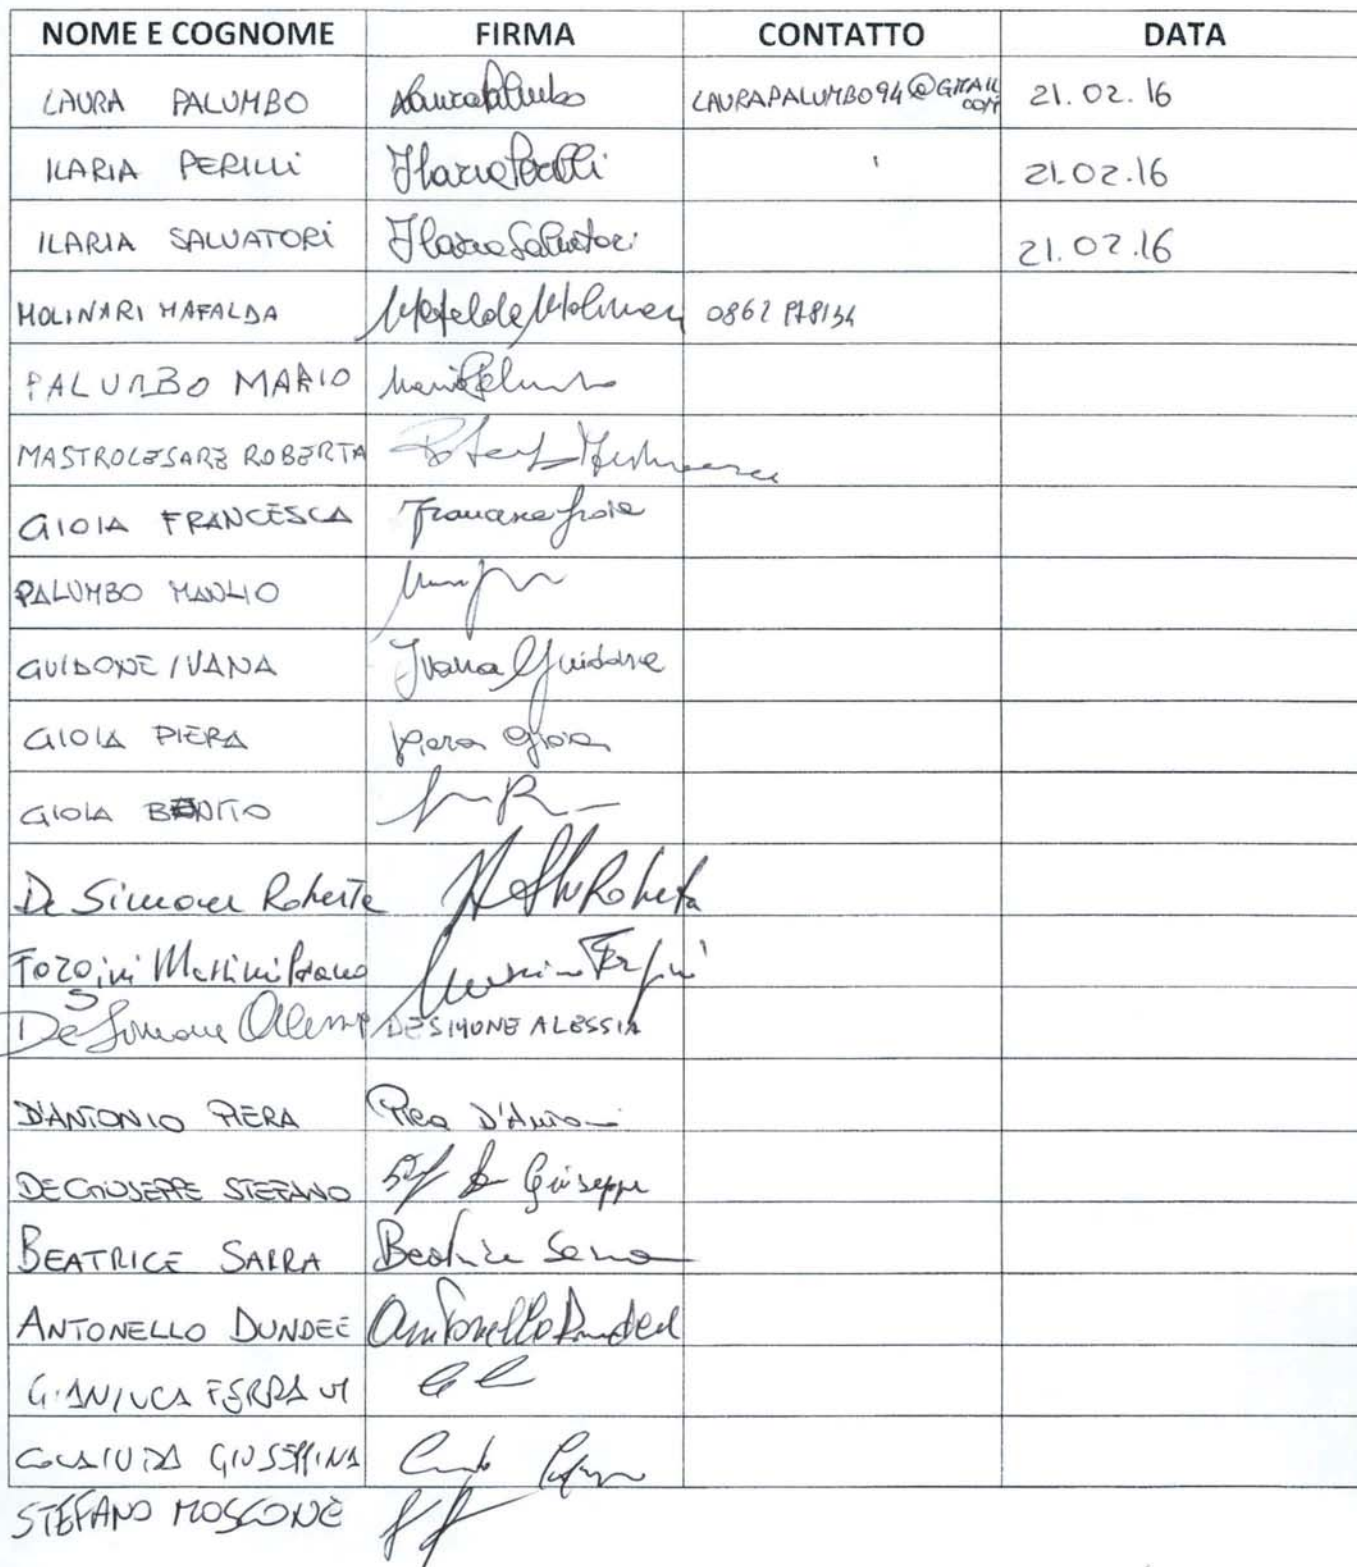 NOME E COGNOME FIRMA CONTATTO DATA
LAURA PALUMBO Laura Palumbo LAURAPALUMBO94@GMAIL COM 21.02.16
ILARIA PERILLI Ilaria Perilli 21.02.16
ILARIA SALVATORI Ilaria Salvatori 21.02.16
MOLINARI MAFALDA Mafalda Molinari 0862
PALUMBO MARIO Mario Palumbo
MASTROCESARE ROBERTA
GIOIA FRANCESCA Francesca Gioia
PALUMBO MANLIO
GUIDONE IVANA Ivana Guidone
GIOIA PIERA Piera Gioia
GIOIA BENITO
De Simone Roberta Roberta
Forgini Massimiliano
De Simone Alessia DESIMONE ALESSIA
D'ANTONIO PIERA Piera D'Antonio
DE GIUSEPPE STEFANO De Giuseppe
BEATRICE SARRA Beatrice Sarra
ANTONELLO DUNDEE Antonello Dundee
GIANLUCA
GIUSEPPINA
STEFANO MOSCONE